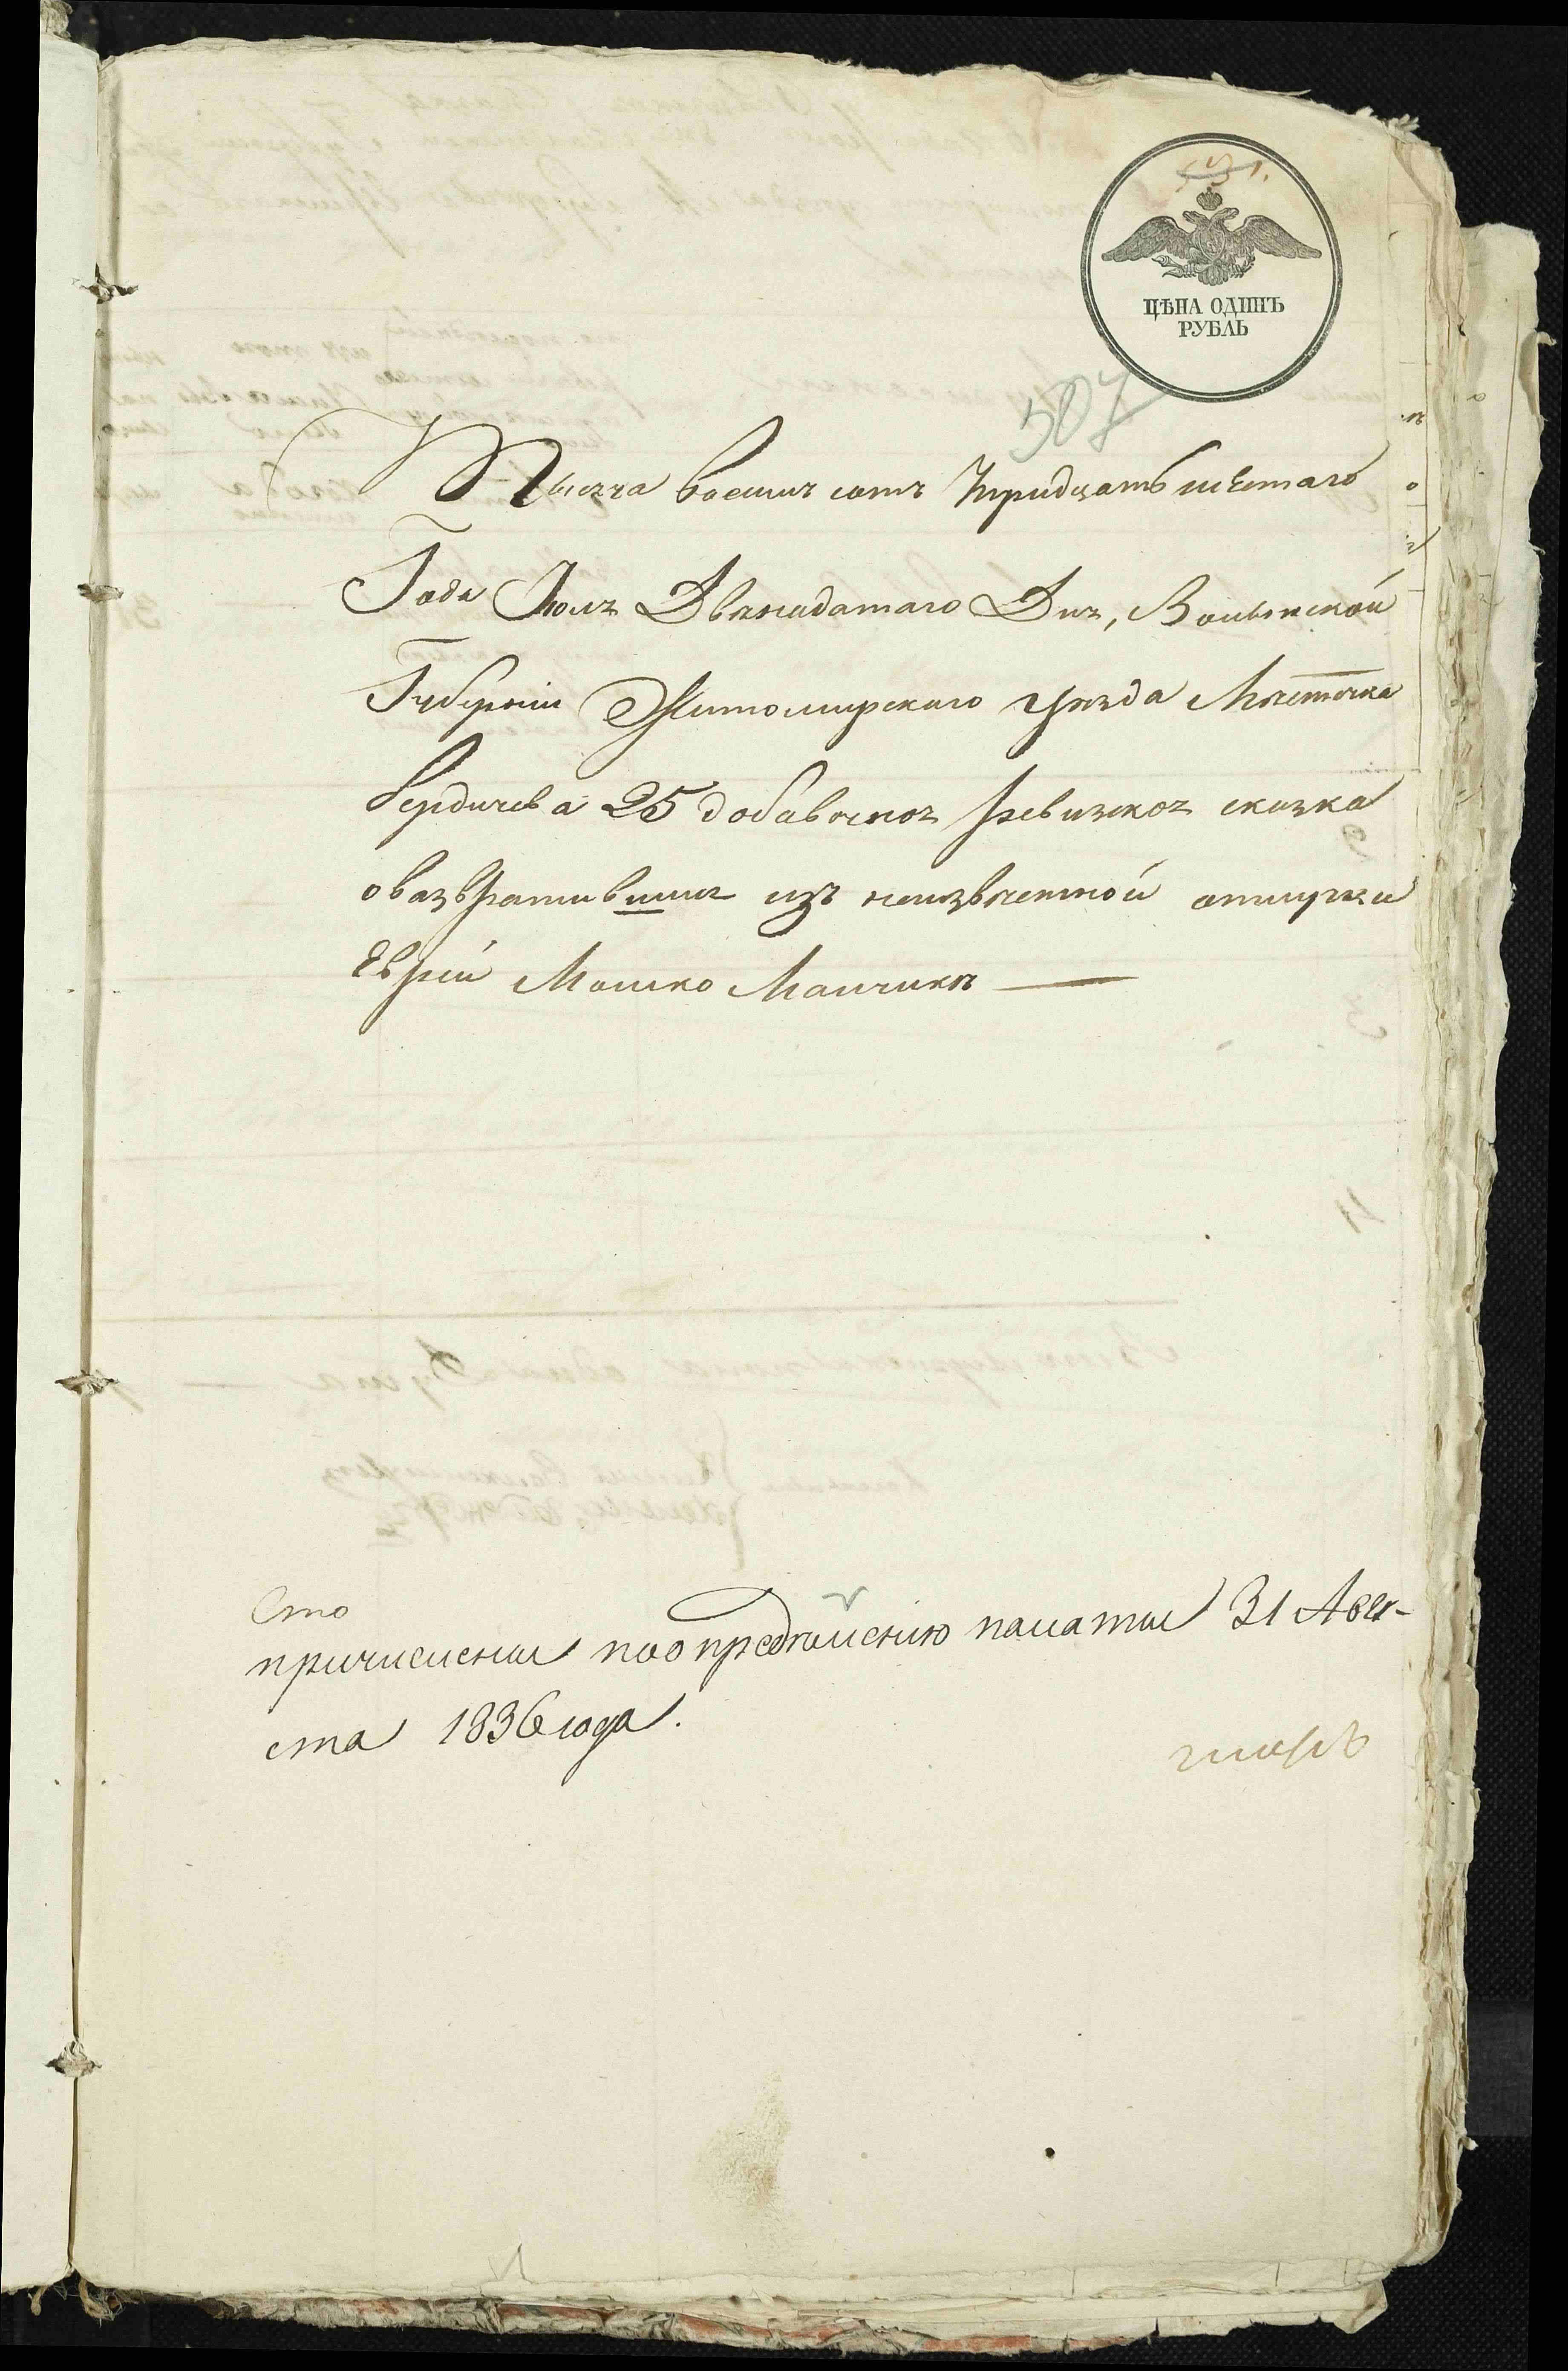 ЦѢНА ОДИНЪ
РУБЛЬ
507
Тысяча восемь сотъ тридцать шестаго
Года Июля Двѣнадатаго Дня, Волынской
Губерніи Житомирскаго уѣзда Мѣстечка
Бердичева 25 добавочноя ревизкоя сказка
о вазвративш из неизвѣстной отлучки
Еврей Мошко
причислены по опредѣлению палаты 31 Авгу-
ста 1836 года.